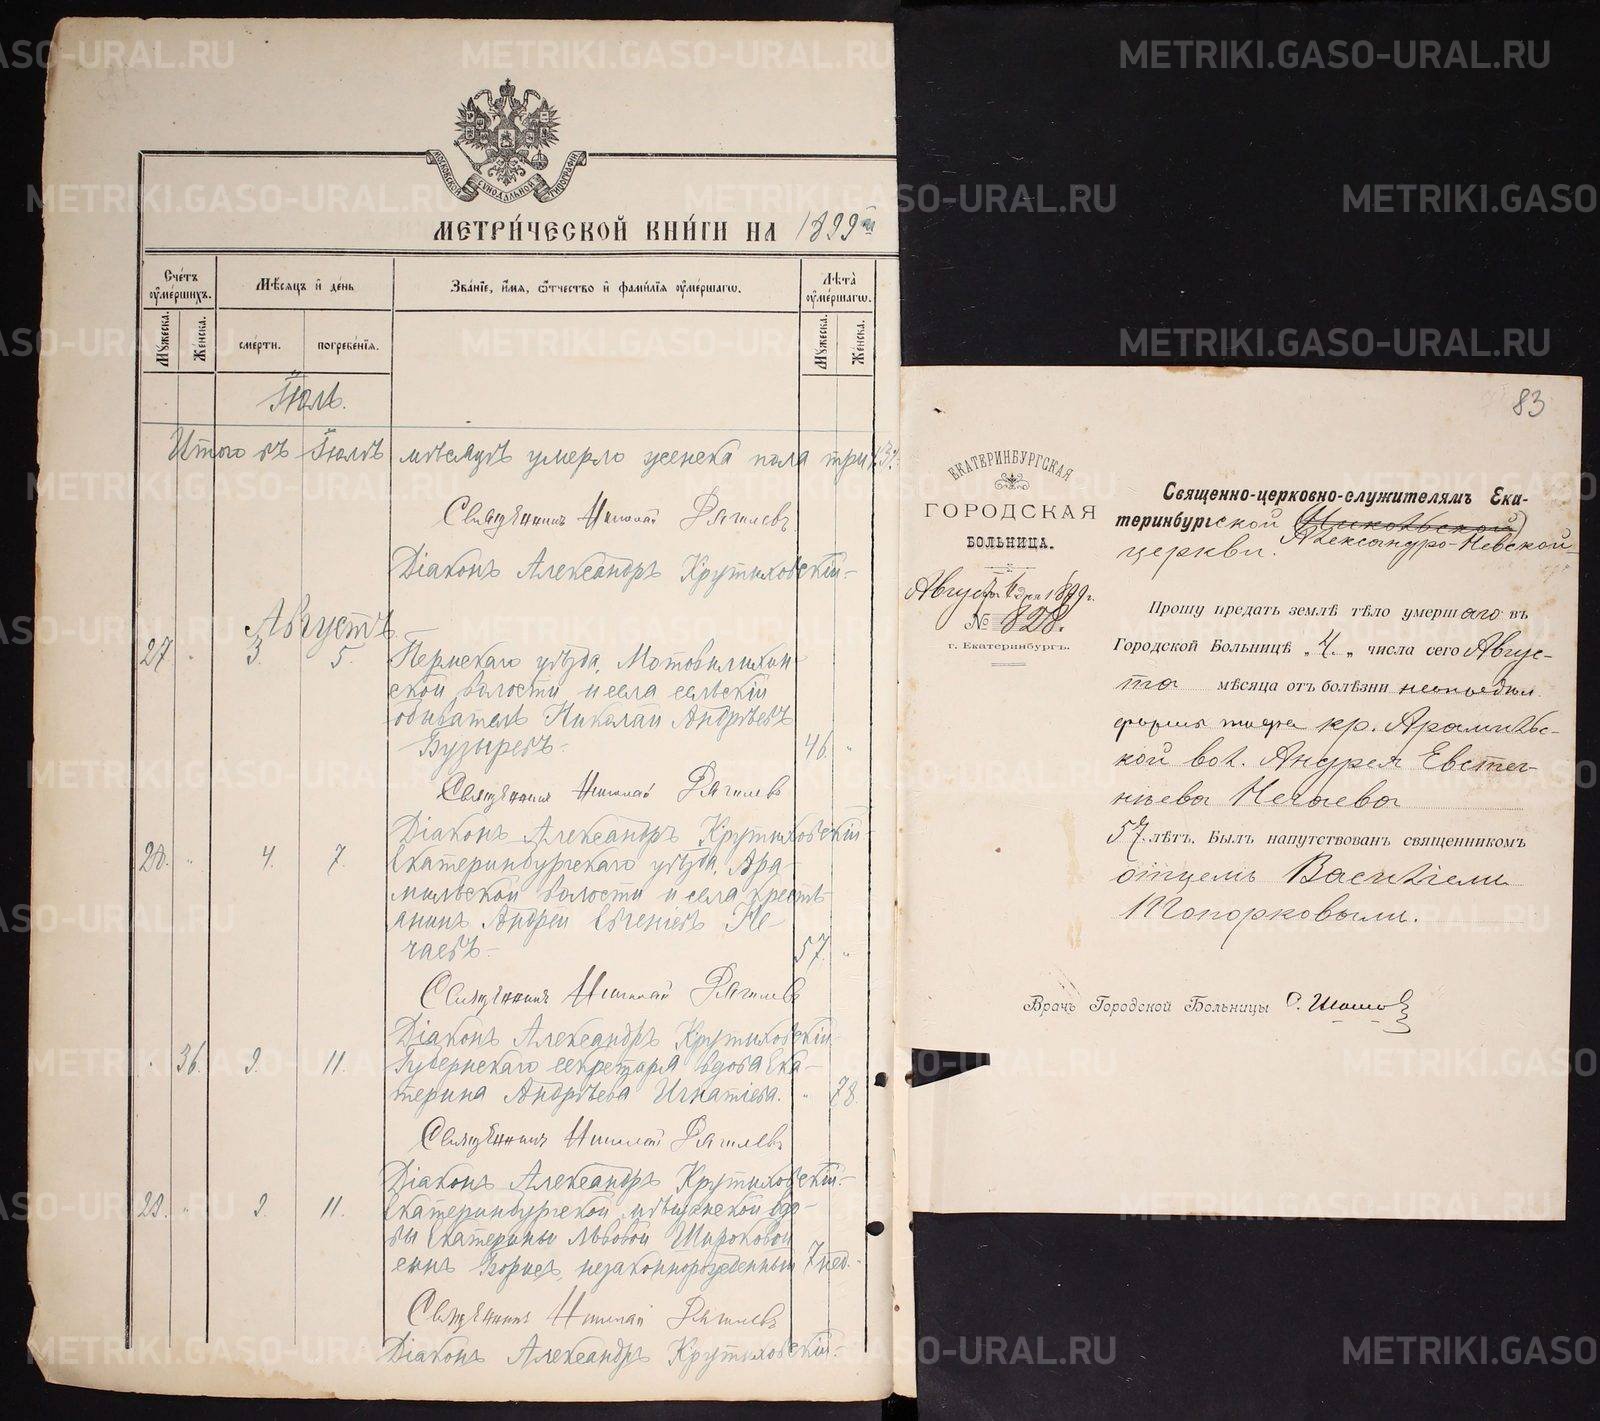 МОСКОВСКОЙ СѴНОДАЛЬНОЙ ТИПОГРАФІИ
МЕТРИ́ЧЕСКОЙ КНИ́ГИ НА 1899й
Счетъ оумершихъ.
Мѣсяцъ и день
Званіе, имя, отчество и фамилія оумершагω.
Лѣта оумершагω.
Мужеска.
Женска.
смерти.
погребенія.
Мужеска.
Женска.
Іюль.
Итого въ Іюлѣ мѣсяцѣ умерло женска пола три /3/.
Священникъ Николай Рягилевъ
Діаконъ Александръ Крутиховскій
Августъ.
27 " 3. 5. Пермскаго уѣзда, Мотовилихин-
ской волости и села сельскій
обыватель Николай Андреевъ
Бузыревъ. 46. "
Священникъ Николай Рягилевъ
Діаконъ Александръ Крутиховскій
28. " 4. 7. Екатеринбургскаго уѣзда, Ара-
мильской волости и села крестья-
нинъ Андрей Евгеніевъ Не-
чаевъ. 57. "
Священникъ Николай Рягилевъ
Діаконъ Александръ Крутиховскій
" 36. 9. 11. Губернскаго секретаря вдова Ека-
терина Андреева Игнатіева. " 78.
Священникъ Николай Рягилевъ
Діаконъ Александръ Крутиховскій.
29. " 9. 11. Екатеринбургской мѣщанской вдо-
вы Екатерины Львовой Широковой
сынъ Борисъ, незаконнорожденный 7 нед.
Священникъ Николай Рягилевъ
Діаконъ Александръ Крутиховскій.
83
ЕКАТЕРИНБУРГСКАЯ
ГОРОДСКАЯ
БОЛЬНИЦА.
Августа 6 дня 1899 г.
№ 828.
г. Екатеринбургъ.
Священно-церковно-служителямъ Ека-
теринбургской Александро-Невской
церкви.
Прошу предать землѣ тѣло умершаго въ
Городской Больницѣ „4.„ числа сего Авгус-
та мѣсяца отъ болѣзни
тифа кр. Арамильс-
кой вол. Андрея Евстег-
нѣева Нечаева
57. лѣтъ. Былъ напутствованъ священникомъ
отцемъ Василіемъ
Топорковымъ.
Врачъ Городской Больницы
METRIKI.GASO-URAL.RU